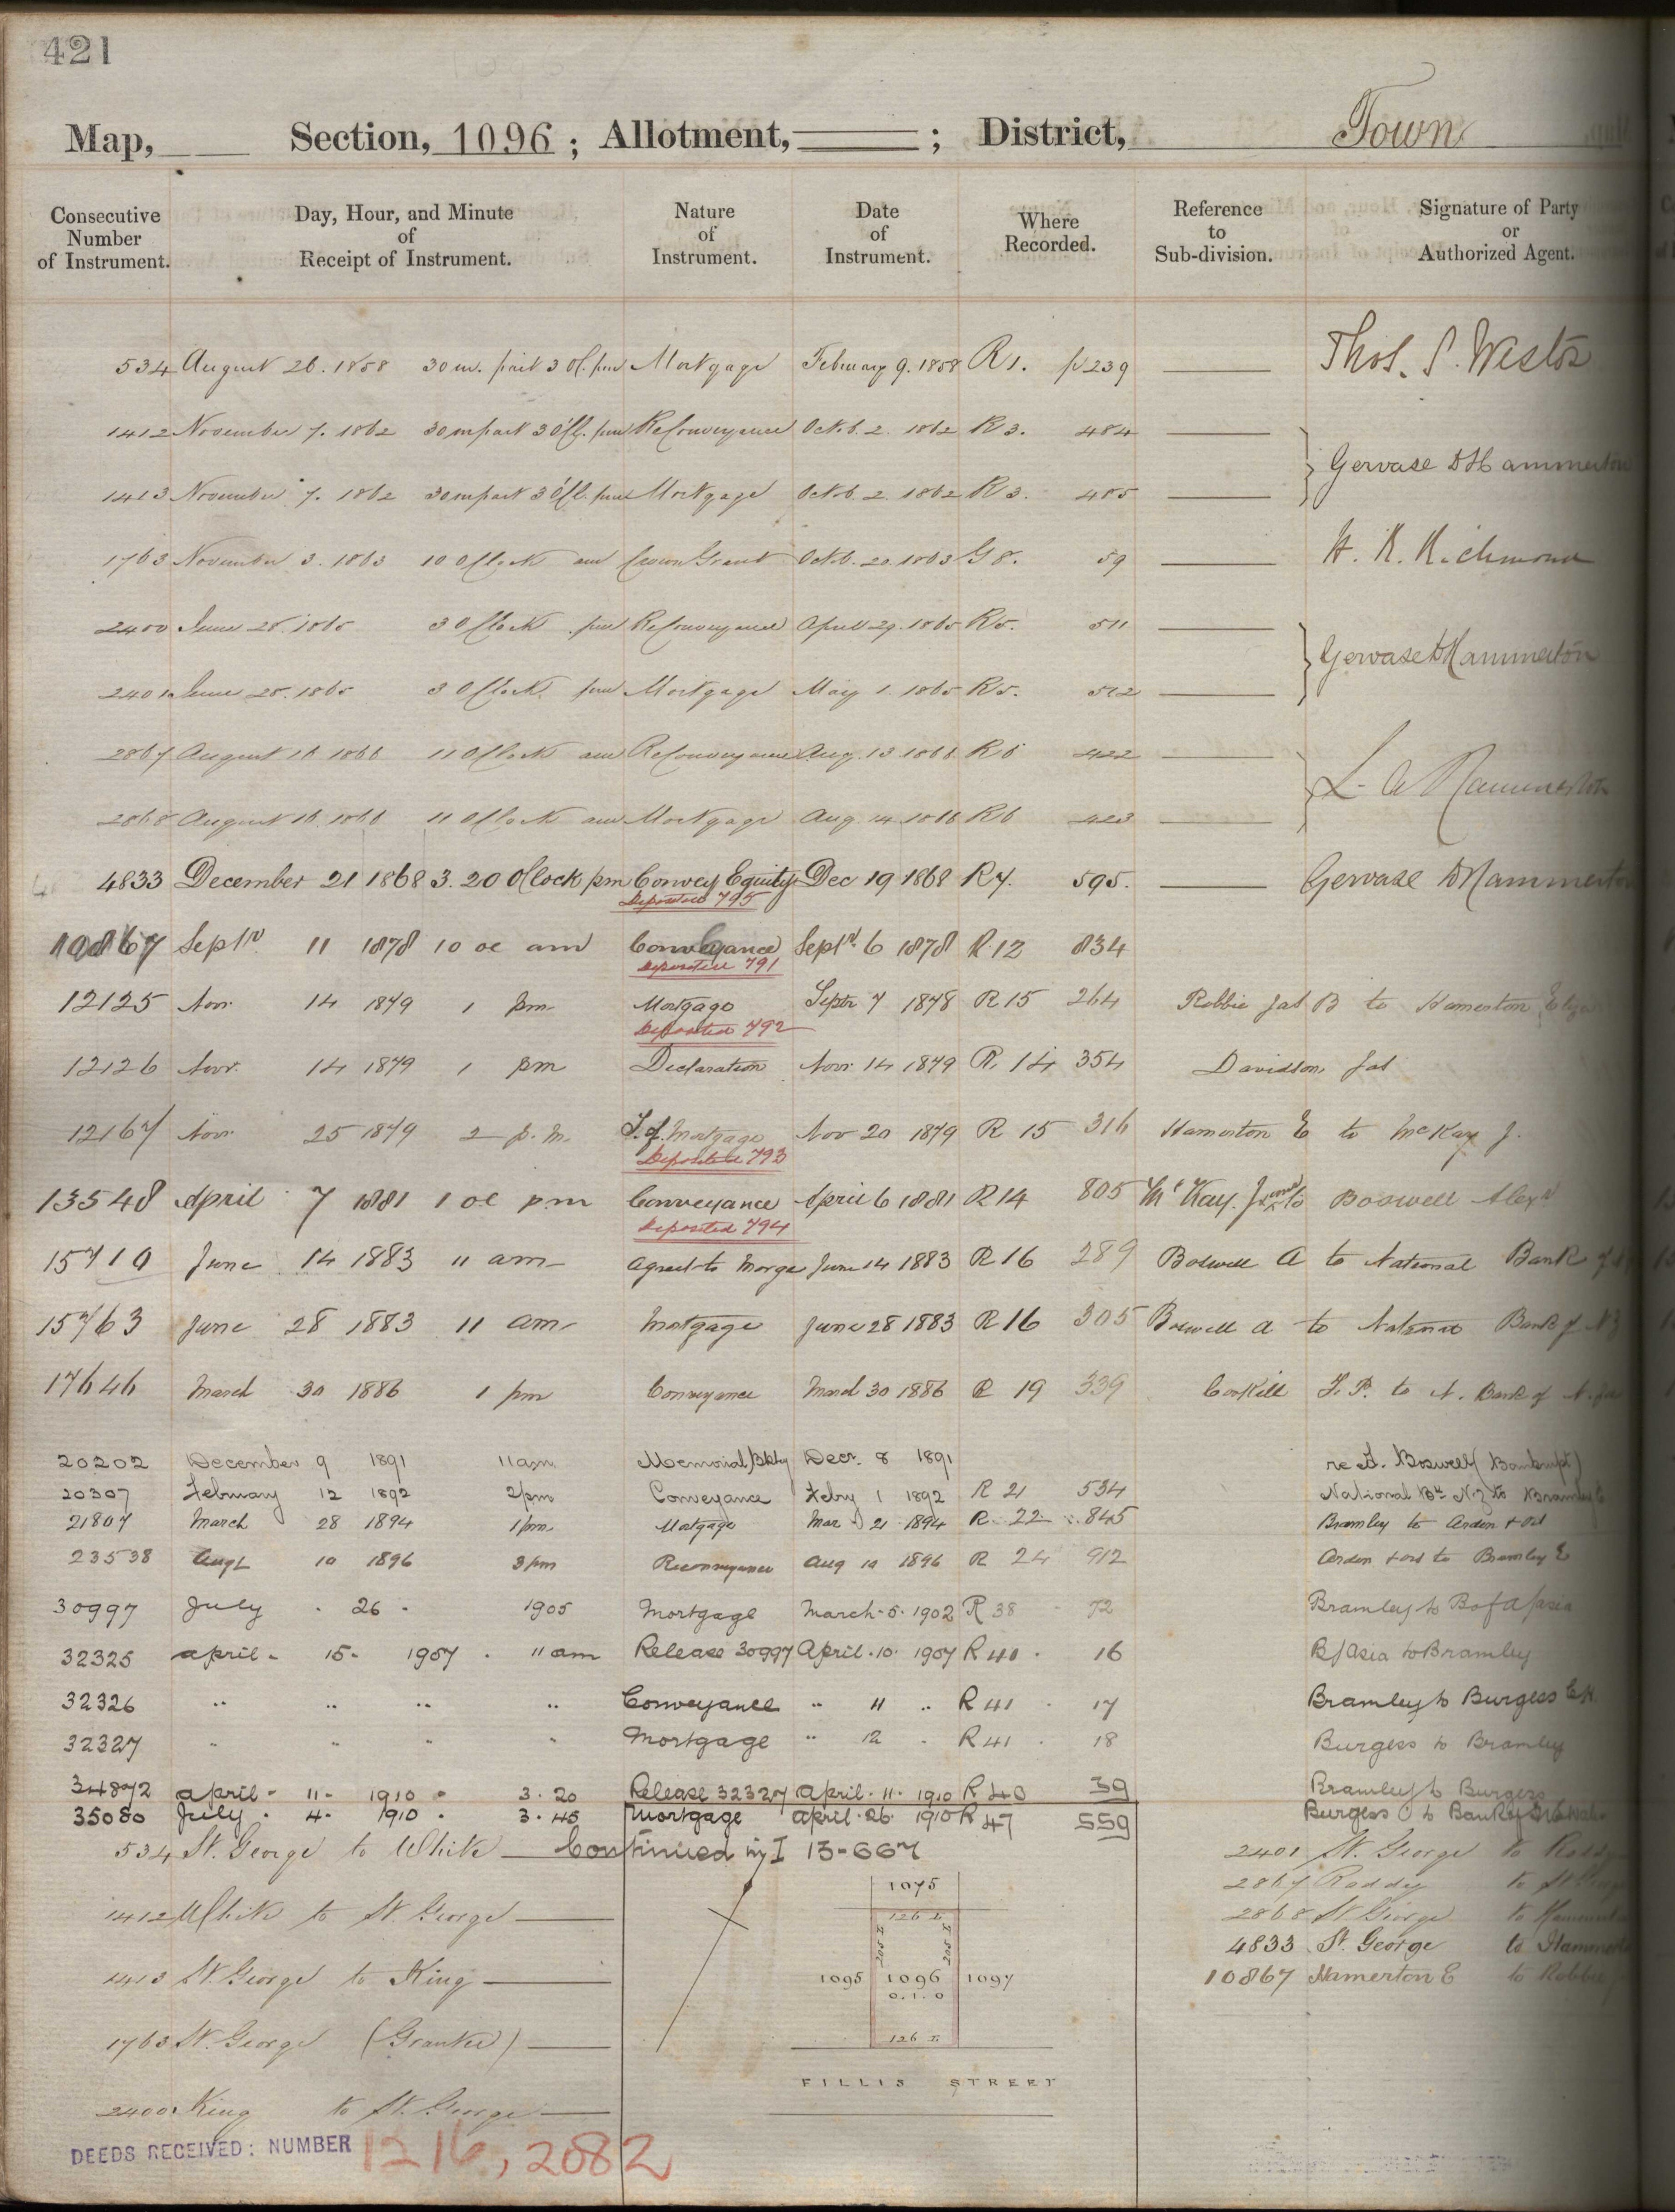 421
Map, Section, 1096 ; Allotment, ; District, Town
Consecutive Number of Instrument. Day, Hour, and Minute of Receipt of Instrument. Nature of Instrument. Date of Instrument. Where Recorded. Reference to Sub-division. Signature of Party or Authorized Agent.
534 August 26. 1858 30 m. past 3 Oc. pm Mortgage February 9. 1858 R 1. p 239 Thos. S. Weston
1412 November 7. 1862 30 m past 3 O'Cl. pm ReConveyance Octb. 2. 1862 R 3. 484
Gervase D Hammerton
1413 November 7. 1862 30 m past 3 O'Cl. pm Mortgage Octb. 2. 1862 R 3. 485
1763 November 3. 1863 10 OClock am Crown Grant Octb. 20. 1863 G 8. 59 H. R. Richmond
2400 June 28. 1865 3 OClock pm ReConveyance April 29. 1865 R 5. 511
Gervase D Hammerton
2401 June 28. 1865 3 OClock pm Mortgage May 1. 1865 R 5. 512
2867 August 16 1866 11 OClock am ReConveyance Aug. 13 1866 R 6 422
L. Hammerton
2868 August 16 1866 11 OClock am Mortgage Aug. 14 1866 R 6 423
4833 December 21 1868 3. 20 OClock pm Convey Equity Dec 19 1868 R 7. 595. Gervase D Hammerton
Deposited 795
10867 Septr 11 1878 10 oc am Conveyance Septr 6 1878 R 12 834
Deposited 791
12125 Novr 14 1879 1 pm Mortgage Septr 7 1878 R 15 264 Robbie Jas B to Hamerton
Deposited 792
12126 Novr. 14 1879 1 pm Declaration Novr 14 1879 R. 14 354 Davidson, Jas
12167 Novr 25 1879 2 p.m. T. of Mortgage Nov 20 1879 R 15 316 Hamerton E to McKay J.
Deposited 793
13548 April 7 1881 1 oc pm Conveyance April 6 1881 R 14 805 McKay. J to Boswell Alexr
Deposited 794
15710 June 14 1883 11 am Agreet to Morge June 14 1883 R 16 289 Boswell A to National Bank of
15763 June 28 1883 11 am Mortgage June 28 1883 R 16 305 Boswell A to National Bank of NZ
17646 March 30 1886 1 pm Conveyance March 30 1886 R 19 339 Corkill F. P. to N. Bank of N.
20202 December 9 1891 11am Memorial/Bktcy Decr. 8 1891 re A. Boswell (Bankrupt)
20307 February 12 1892 2pm Conveyance Febry 1 1892 R 21 534 National Bk N.Z to Bramley E
21807 March 28 1894 1 pm Mortgage Mar 21 1894 R. 22 845 Bramley to Arden + ors
23538 Augt 10 1896 3 pm Reconveyance Aug 10 1896 R 24 912 Arden + ors to Bramley E
30997 July 26 1905 Mortgage March 5 1902 R 38 72 Bramley to B of A/asia
32325 April 15 1907 11 am Release 30997 April 10 1907 R 40 16 B/Asia to Bramley
32326 .. .. .. .. Conveyance " 11 .. R 41 17 Bramley to Burgess C.H.
32327 " " " " Mortgage " 12 " R 41 18 Burgess to Bramley
34872 April 11 1910 3. 20 Release 32327 April 11 1910 R 40 39 Bramley to Burgess
35080 July 4 1910 3. 45 Mortgage April 26 1910 R 47 559 Burgess to Bank of
Continued in I 13-667
534 St. George to White
1412 White to St. George
1413 St. George to King
1763 St. George (Grantee)
2400 King to St. George
1075
126 L
205 L 205 L
1095 1096 1097
0. 1. 0
126 L
FILLIS STREET
2401 St. George to Roddy
2867 Roddy to St. George
2868 St. George to Hammerton
4833 St. George to Hammerton
10867 Hamerton E to Robbie
DEEDS RECEIVED: NUMBER 1216, 2082